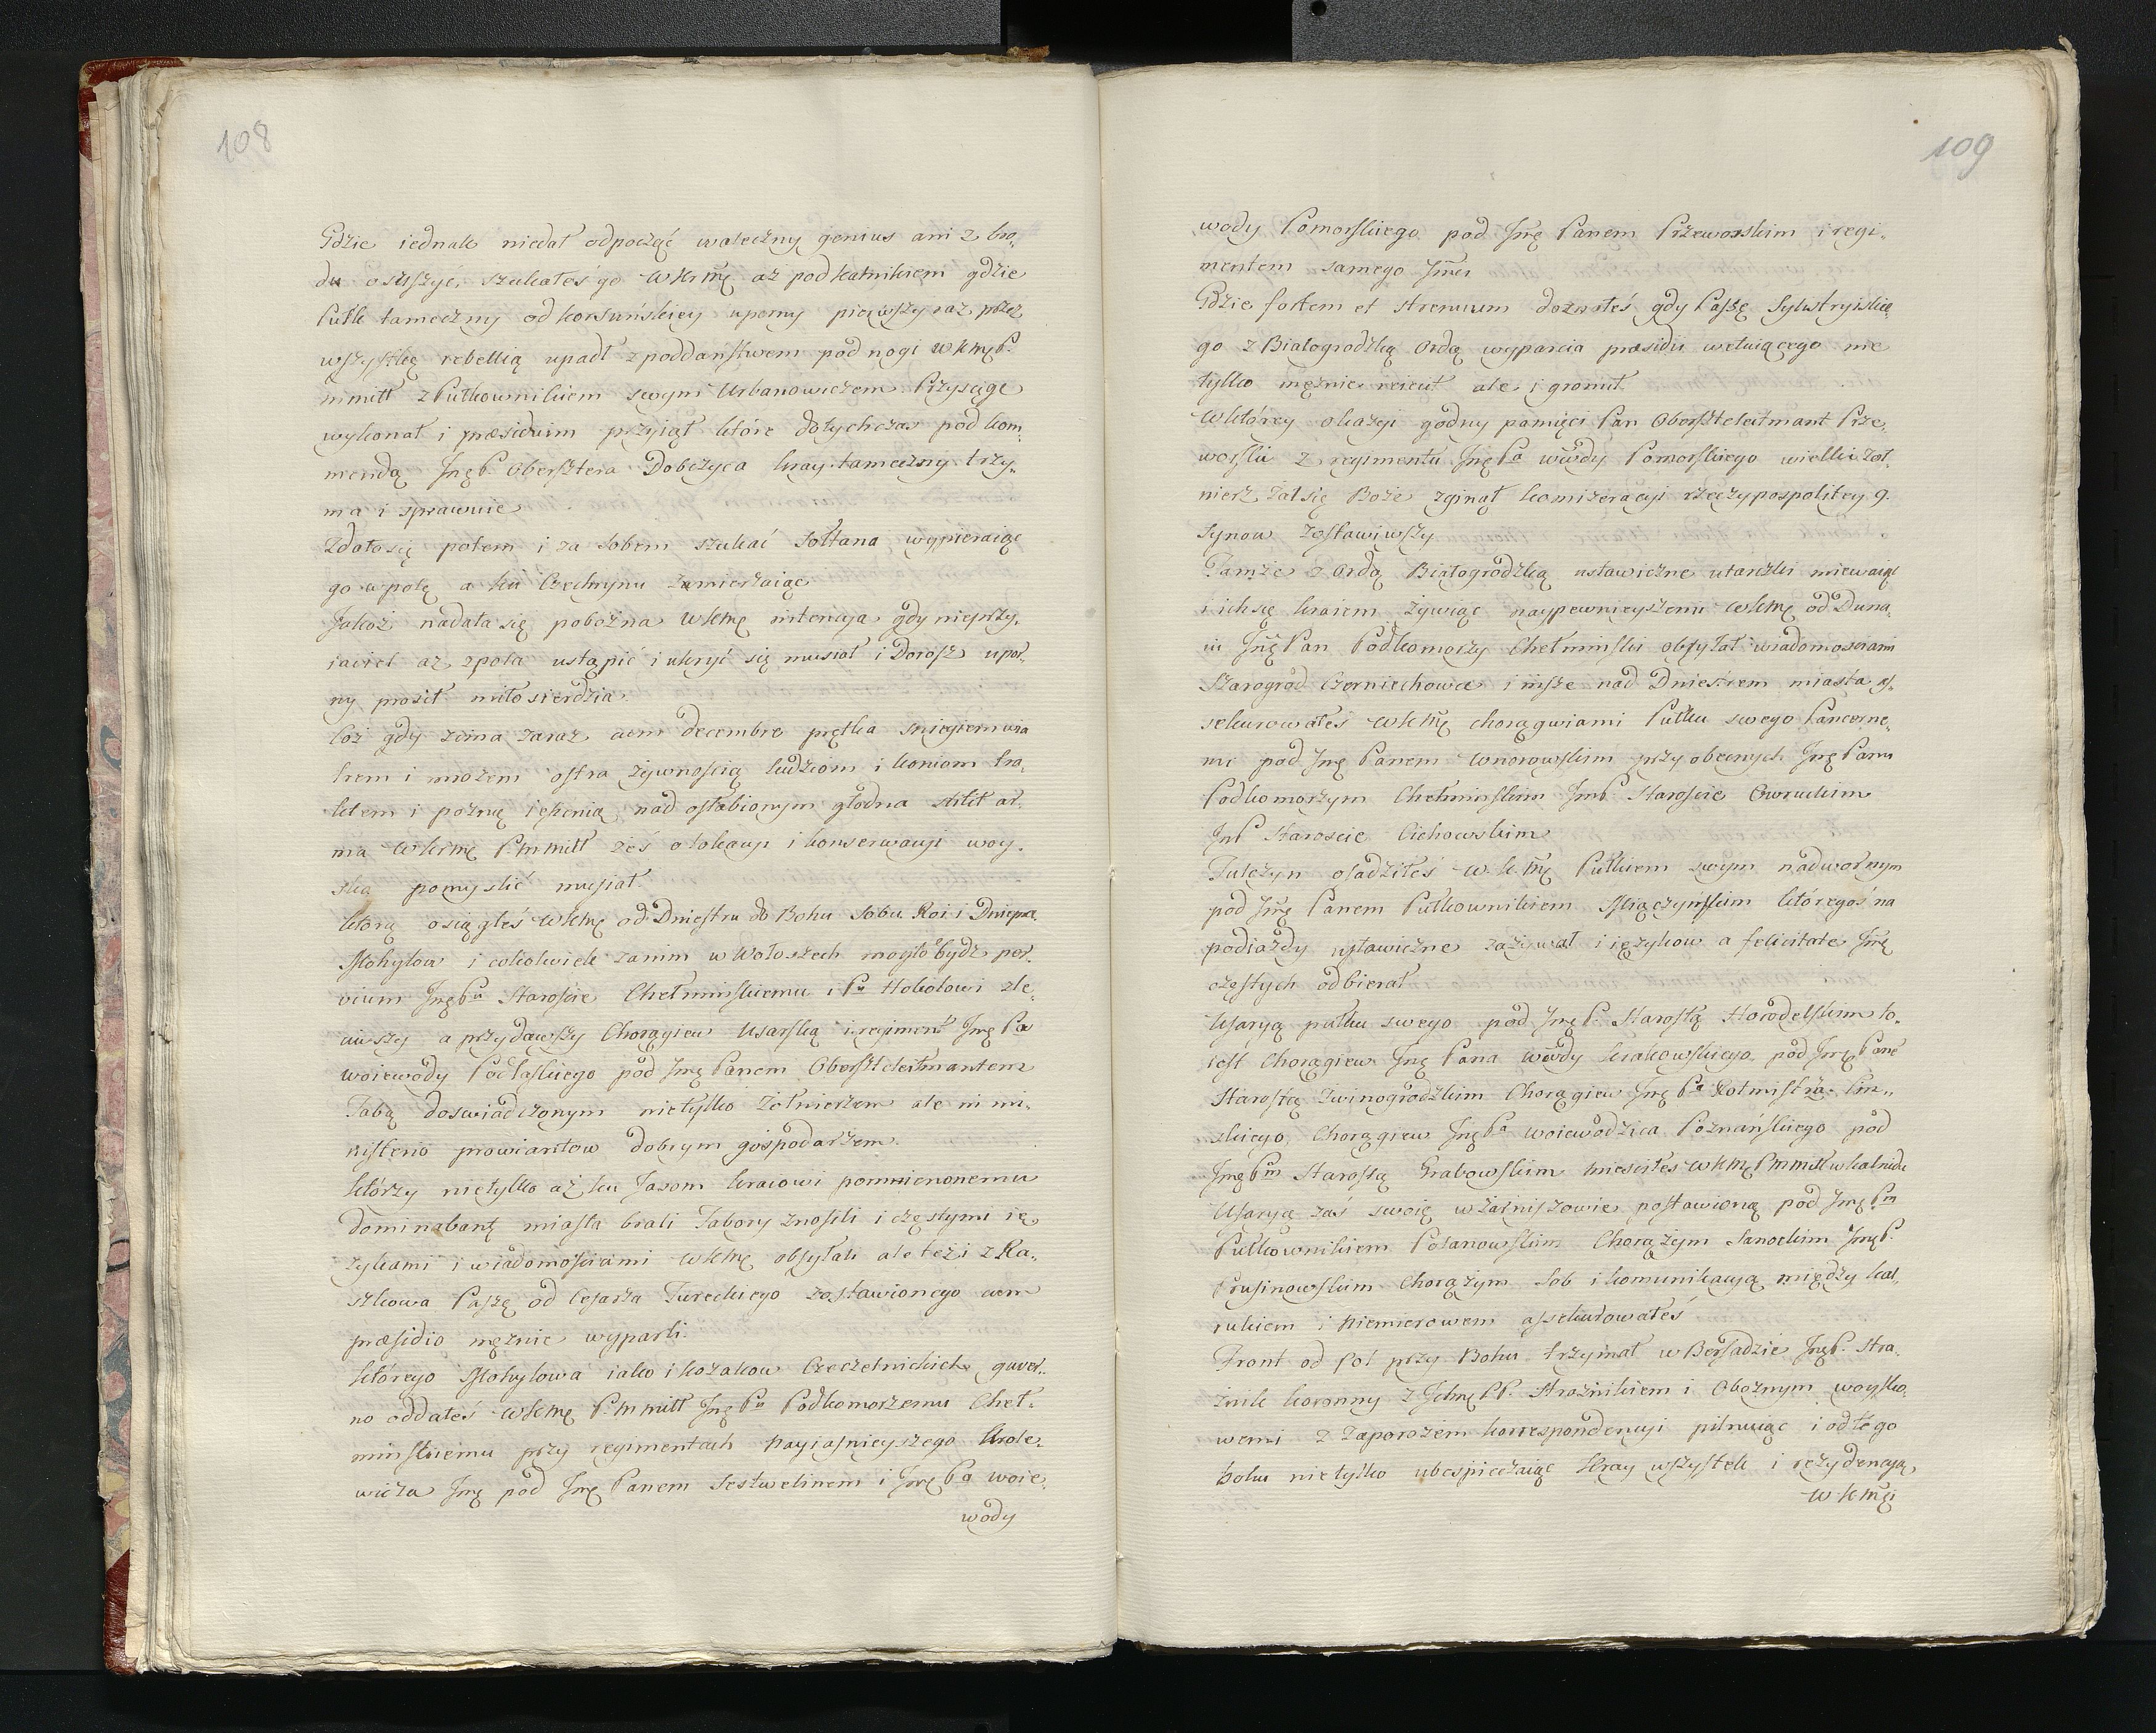 108
Gdzie iednak niedał odpocząć waleczny genius ani z bro-
du osuszyć, szukałeś go WKMę aż pod Kalnikiem gdzie
Pułk tameczny od Korsuńskiey uporny pierwszy raz przez
wszystkę rebellią upadł z poddaństwem pod nogi WKMę P.
mmiłł z Pułkownikiem swym Urbanowiczem Przysięgę
wykonał i præsidium przyiął które dotychczas pod kom-
mendą Jmę P. Obersztera Dobeżyca kray tameczny trzy-
ma i sprawuie
Zdało się potem i za Sobem szukać Sołtana wypieraiąc
go w polę a ku Czechrynu zamierzaiąc
Jakoż nadała się pobożna WKMę intencya gdy nieprzy-
iaciel aż z pola ustąpić i ukryć się musiał i Dorosz upor-
ny prosił miłosierdzia
Coż gdy zima zaraz cum decembre prętka sniegiem wia
trem i mrozem ostra żywnością ludziom i koniom kro-
kiem i pozną iesienią nad osłabionym głodna stilit ar-
ma WKMę P. m miłł żeś o lokacyi i konserwacyi woy-
ska pomyslić musiał.
którą osiągłeś WKMę od Dniestru do Bohu Sobu Roi i Dniepra
Mohylow i cokolwiek zanim w Wołoszech mogło bydz per-
vium Jmę Pu Staroscie Chełminskiemu i Pu Hokołowi zle-
ciwszy a przydawszy Chorągiew Usarską i regiment Jmę Pa
woiewody Podlaskiego pod Jmę Panem Obersztleitmantem
Tabą doswiadczonym nietylko żołnierzem ale in mi-
nisterio prowiantow dobrym gospodarzem.
którzy nietylko aż ku Jasom kraiowi pomnienonemu
dominabant miasta brali Tabory znosili i częstymi ię-
zykami i wiadomościami WKMę obsyłali ale też i z Ra-
szkowa Paszę od Cesarza Tureckiego zostawionego cum
præsidio mężnie wyparli.
którego Mohylowa iako i kozakow Czeczelnickich guber-
no oddałeś WKMę P. m miłł Jmę Pu Podkomorzemu Cheł-
minskiemu przy regimentach Nayiasnieyszego Krole-
wicza Jmę pod Jmę Panem Sestwelinem i Jmę Pa woie-
wody
109
wody Pomorskiego pod Jmę Panem Przeworskim i regi-
mentem samego Jmci
Gdzie fortem et strenuum doznałeś gdy Paszę Sylistryiskie-
go z Białogrodzką Ordą wyparcia præsidii wetuiącego nie
tylko mężnie reiecit ale i gromił.
W którey okazyi godny pamięci Pan Obersztleitmant Prze-
worski z regimentu Jmę Pa wdy Pomorskiego wielki żoł-
nierz żal się Boże zginął komizeracyi rzeczypospolitey 9.
synow zostawiwszy
Tamże z Ordą Białogrodzką ustawiczne utarczki miewaiąc
i ich się kraiem żywiąc naypewnieyszemi WKMę od Duna-
iu Jmę Pan Podkomorzy Chełminski obsyłał wiadomosciami
Szarogrod Czerniechowce i insze nad Dniestrem miasta as-
sekurowałeś WKMę chorągwiami Pułku swego Pancerne-
mi pod Jmę Panem Wnorowskim przy obecnych Jmę Panu
Podkomorzym Chełminskim Jmę P Staroscie Owruckim
Jmę P Staroscie Cichowskim
Tulczyn osadziłeś W.K.Mę Pułkiem swym nadwornym
pod Jmę Panem Pułkownikiem Miączyńskim któregoś na
podiazdy ustawiczne zażywał i ięzykow a felicitate Jmę
częstych odbierał
Usaryą pułku swego pod Jmę P. Starostą Horodelskim to-
iest Chorągiew Jmę Pana wdy krakowskiego pod Jmę Pane
Starostą Zwinogrodzkim Chorągiew Jmę Pa Rotmistrza Pin-
skiego, Chorągiew Jmę Pa woiewodzica Poznańskiego pod
Jmę Pm Starostą Grabowskim miesciłeś WKMę P m miłł w kalniku
Usaryą zaś swoię w Żorniszowie postawioną pod Jmę Pm
Pułkownikiem Polanowskim Chorążym Sanockim Jmę P.
Prusinowskim Chorążym Sob i komunikacyą między kal-
nikiem i Niemierowem assekurowałeś
Front od pol przy Bohu trzymał w Berszadzie Jmę P. Stra-
żnik koronny z Jchmę PP. Strażnikiem i Oboznym woysko-
wemi z Zaporożem korrespondencyi pilnuiąc i od tego
boku nietylko ubespieczaiąc kray wszystek i rezydencyą
W K Mci